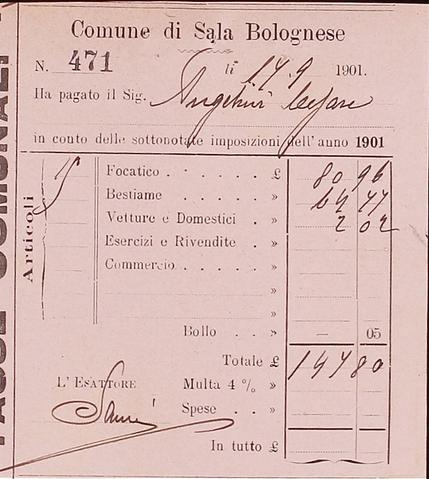 TASSE COMUNALI
Comune di Sala Bolognese
N. 471 li 1901.
Ha pagato il Sig. Angelini Cesare
in conto delle sottonotate imposizioni dell'anno 1901
Articoli
Focatico . . . . . . £ 80 96
Bestiame . . . . . » 64 77
Vetture e Domestici . » 2 02
Esercizi e Rivendite . »
Commercio . . . . . »
»
Bollo . . » — 05
Totale £ 147 80
L'ESATTORE Multa 4 % »
Spese . . »
In tutto £